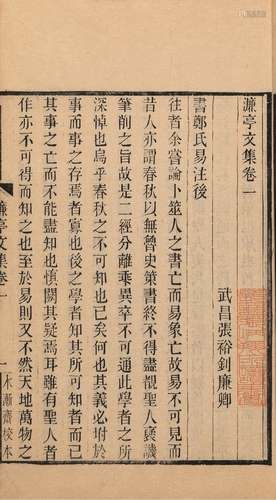 濂亭文集卷一
武昌張裕釗廉卿
書鄭氏易注後
往者余嘗論卜筮人之書亡而易象亡故易不可見而
昔人亦謂春秋以無魯史策書終不得盡覩聖人褒譏
筆削之旨故是二經分離乖異卒不可通此學者所以
深悼也烏乎春秋之不可知者其事也其義必附於
事而事之存焉者寡也後之學者知其所可知者而
其事之亡而不能盡知也慎闕其疑焉耳雖有聖人者
作亦不可得而知之也至於易則又不然天地萬物之
濂亭文集卷一
一
木漸齋校本